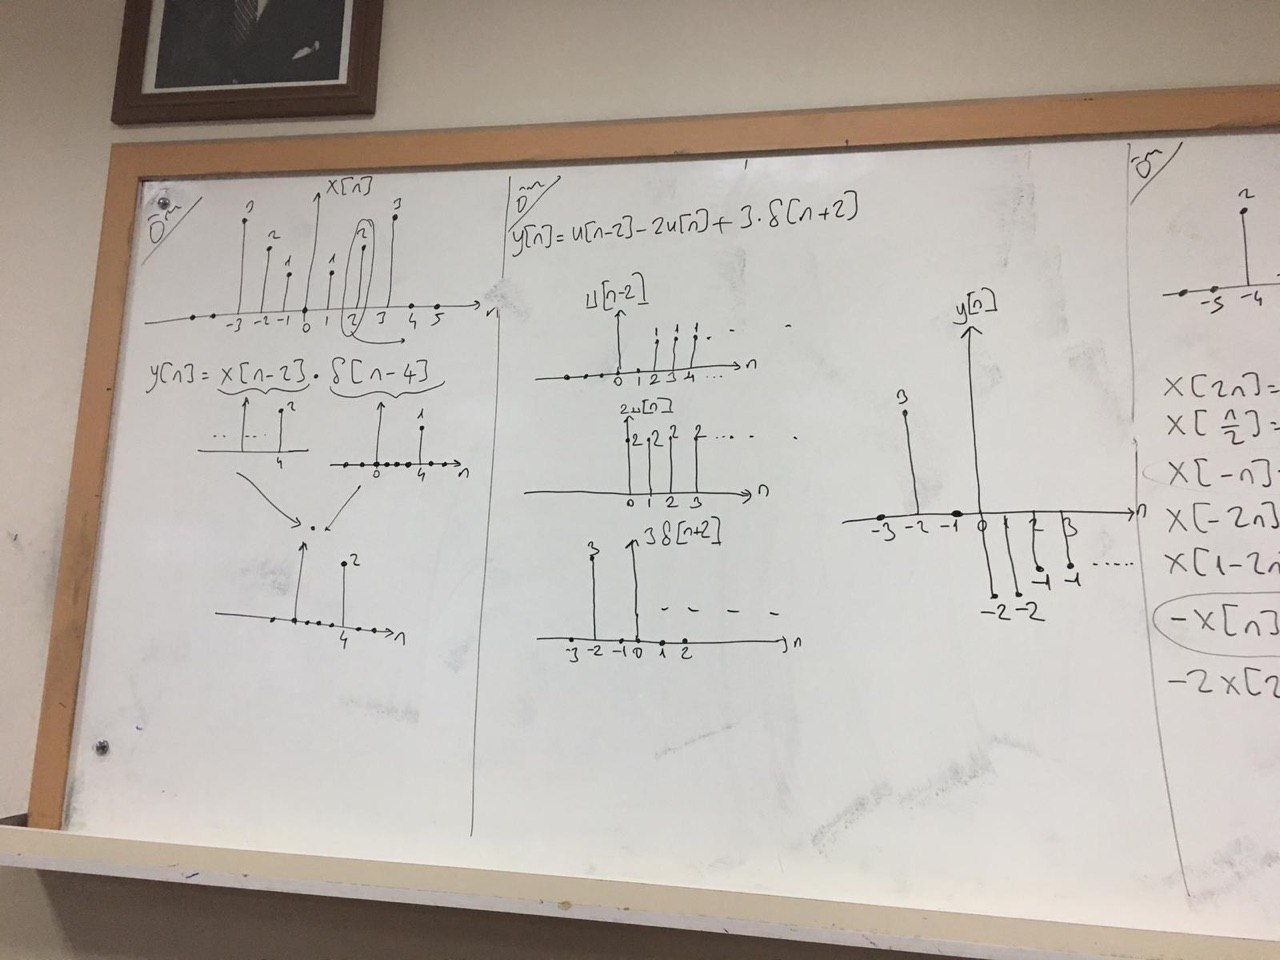 Ör
x[n]
3 2 1 1 2 3
-3 -2 -1 0 1 2 3 4 5 n
y[n] = x[n-2] · δ[n-4]
2 1
4 0 4 n
·
2
4 n
Ör
y[n] = u[n-2] - 2u[n] + 3·δ[n+2]
u[n-2]
1 1 1
0 1 2 3 4 ... n
2u[n]
2 2 2 2 ....
0 1 2 3 n
3δ[n+2]
3
-3 -2 -1 0 1 2 n
y[n]
3
-3 -2 -1 0 1 2 3 n
-1 -1 .....
-2 -2
Ö
2
-5 -4
x[2n]=
x[n/2]=
x[-n]
x[-2n]
x[1-2n
-x[n]
-2x[2